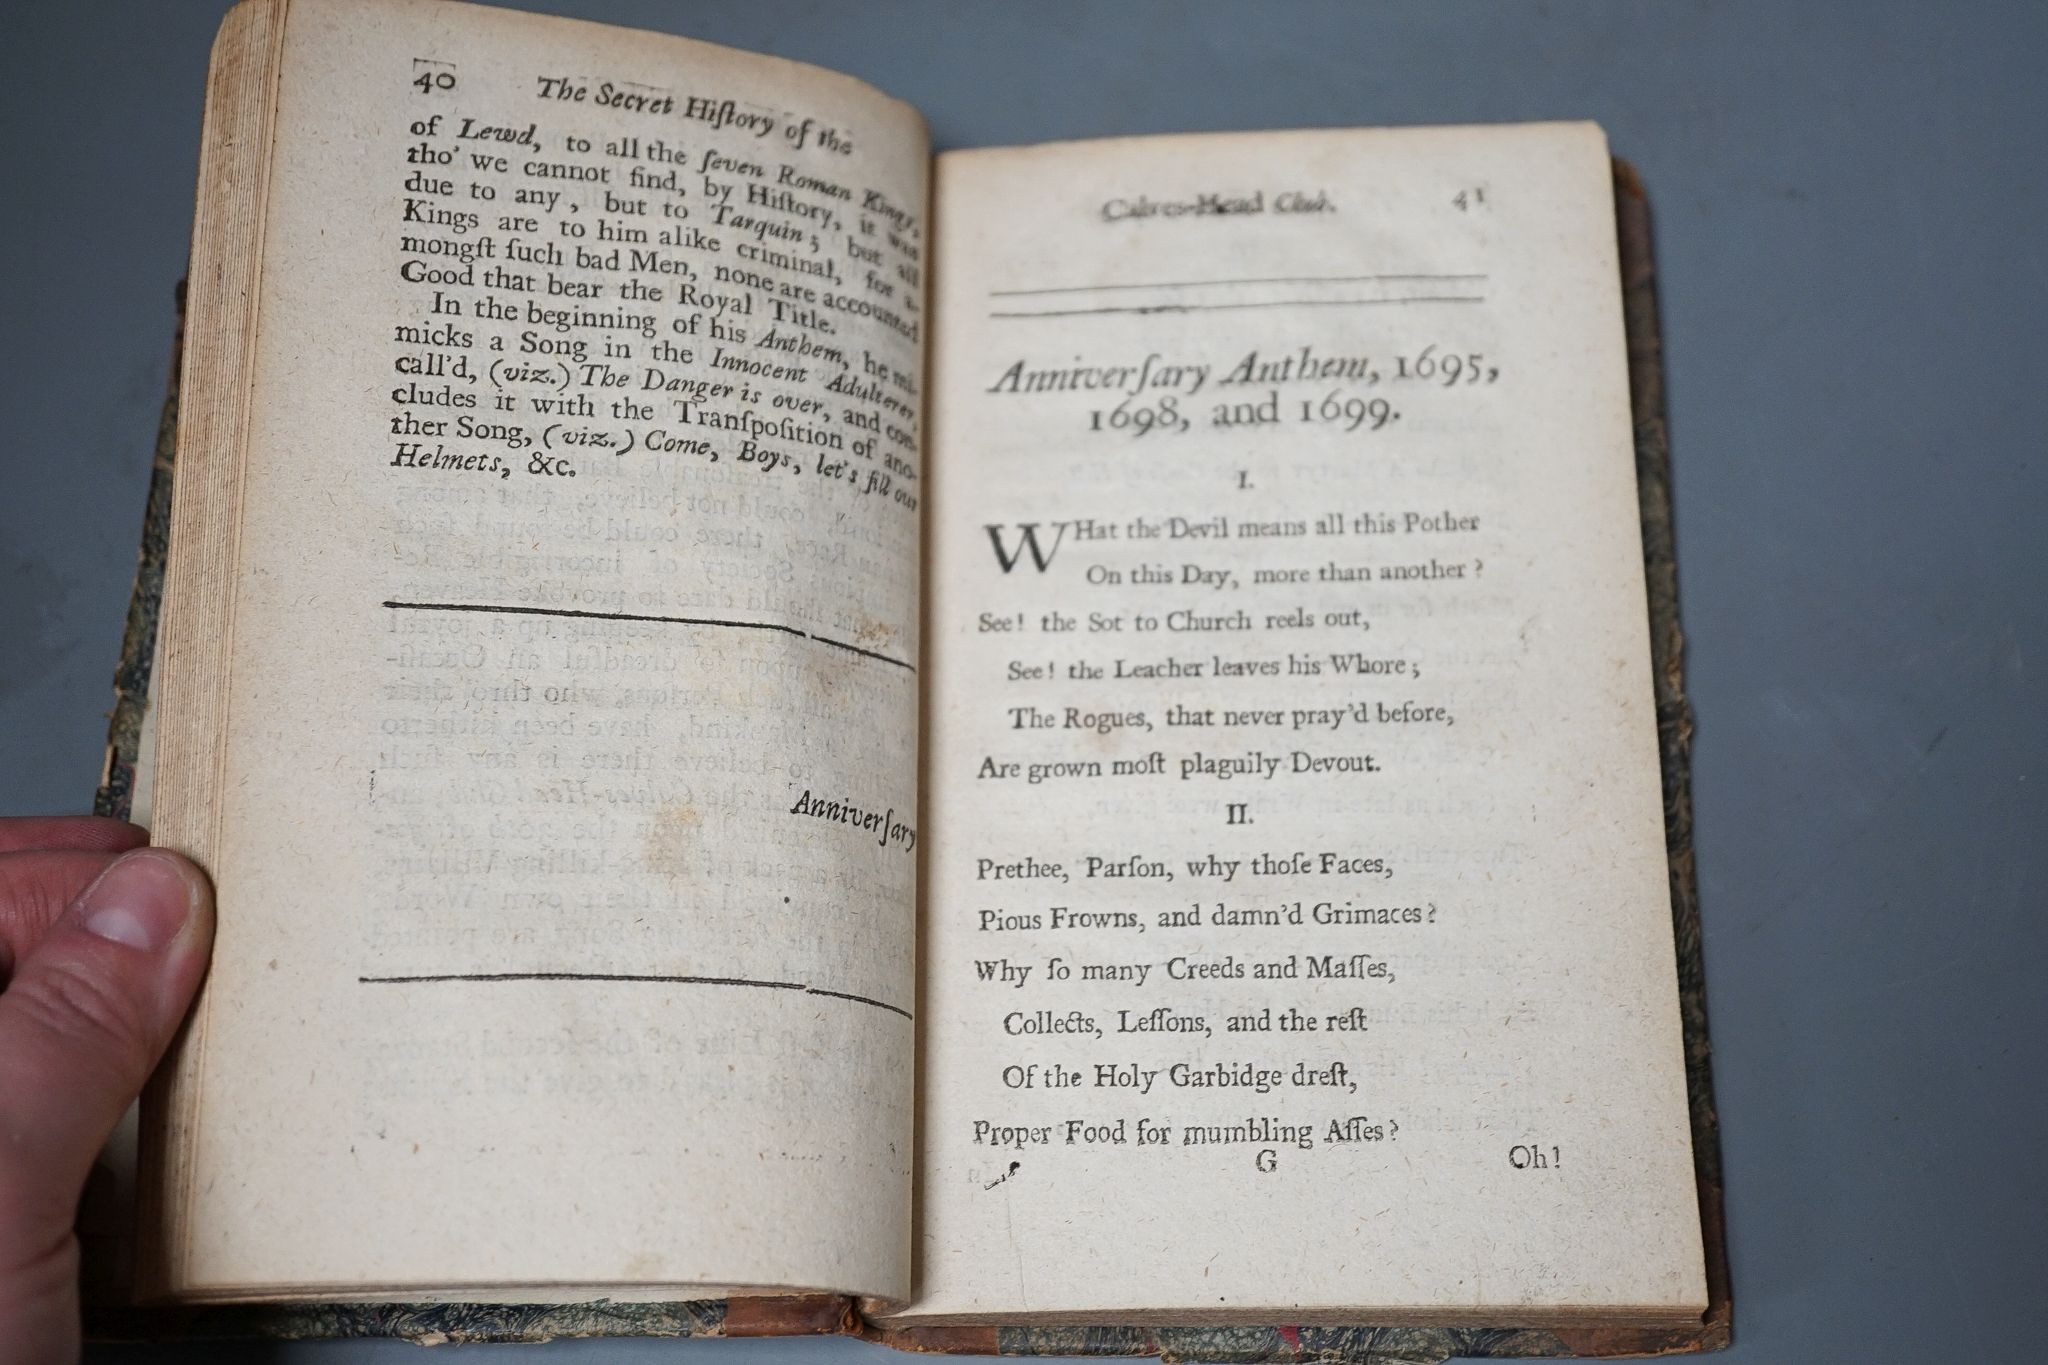 40 The Secret Hiſtory of the
of Lewd, to all the ſeven Roman Kings,
tho' we cannot find, by Hiſtory, it was
due to any, but to Tarquin; but all
Kings are to him alike criminal, for a-
mongſt ſuch bad Men, none are accounted
Good that bear the Royal Title.
In the beginning of his Anthem, he mi-
micks a Song in the Innocent Adulterer,
call'd, (viz.) The Danger is over, and con-
cludes it with the Tranſpoſition of ano-
ther Song, (viz.) Come, Boys, let's fill our
Helmets, &c.
Anniverſary
Calves-Head Club. 41
Anniverſary Anthem, 1695,
1698, and 1699.
I.
WHat the Devil means all this Pother
On this Day, more than another?
See! the Sot to Church reels out,
See! the Leacher leaves his Whore;
The Rogues, that never pray'd before,
Are grown moſt plaguily Devout.
II.
Prethee, Parſon, why thoſe Faces,
Pious Frowns, and damn'd Grimaces?
Why ſo many Creeds and Maſſes,
Collects, Leſſons, and the reſt
Of the Holy Garbidge dreſt,
Proper Food for mumbling Aſſes?
G Oh!